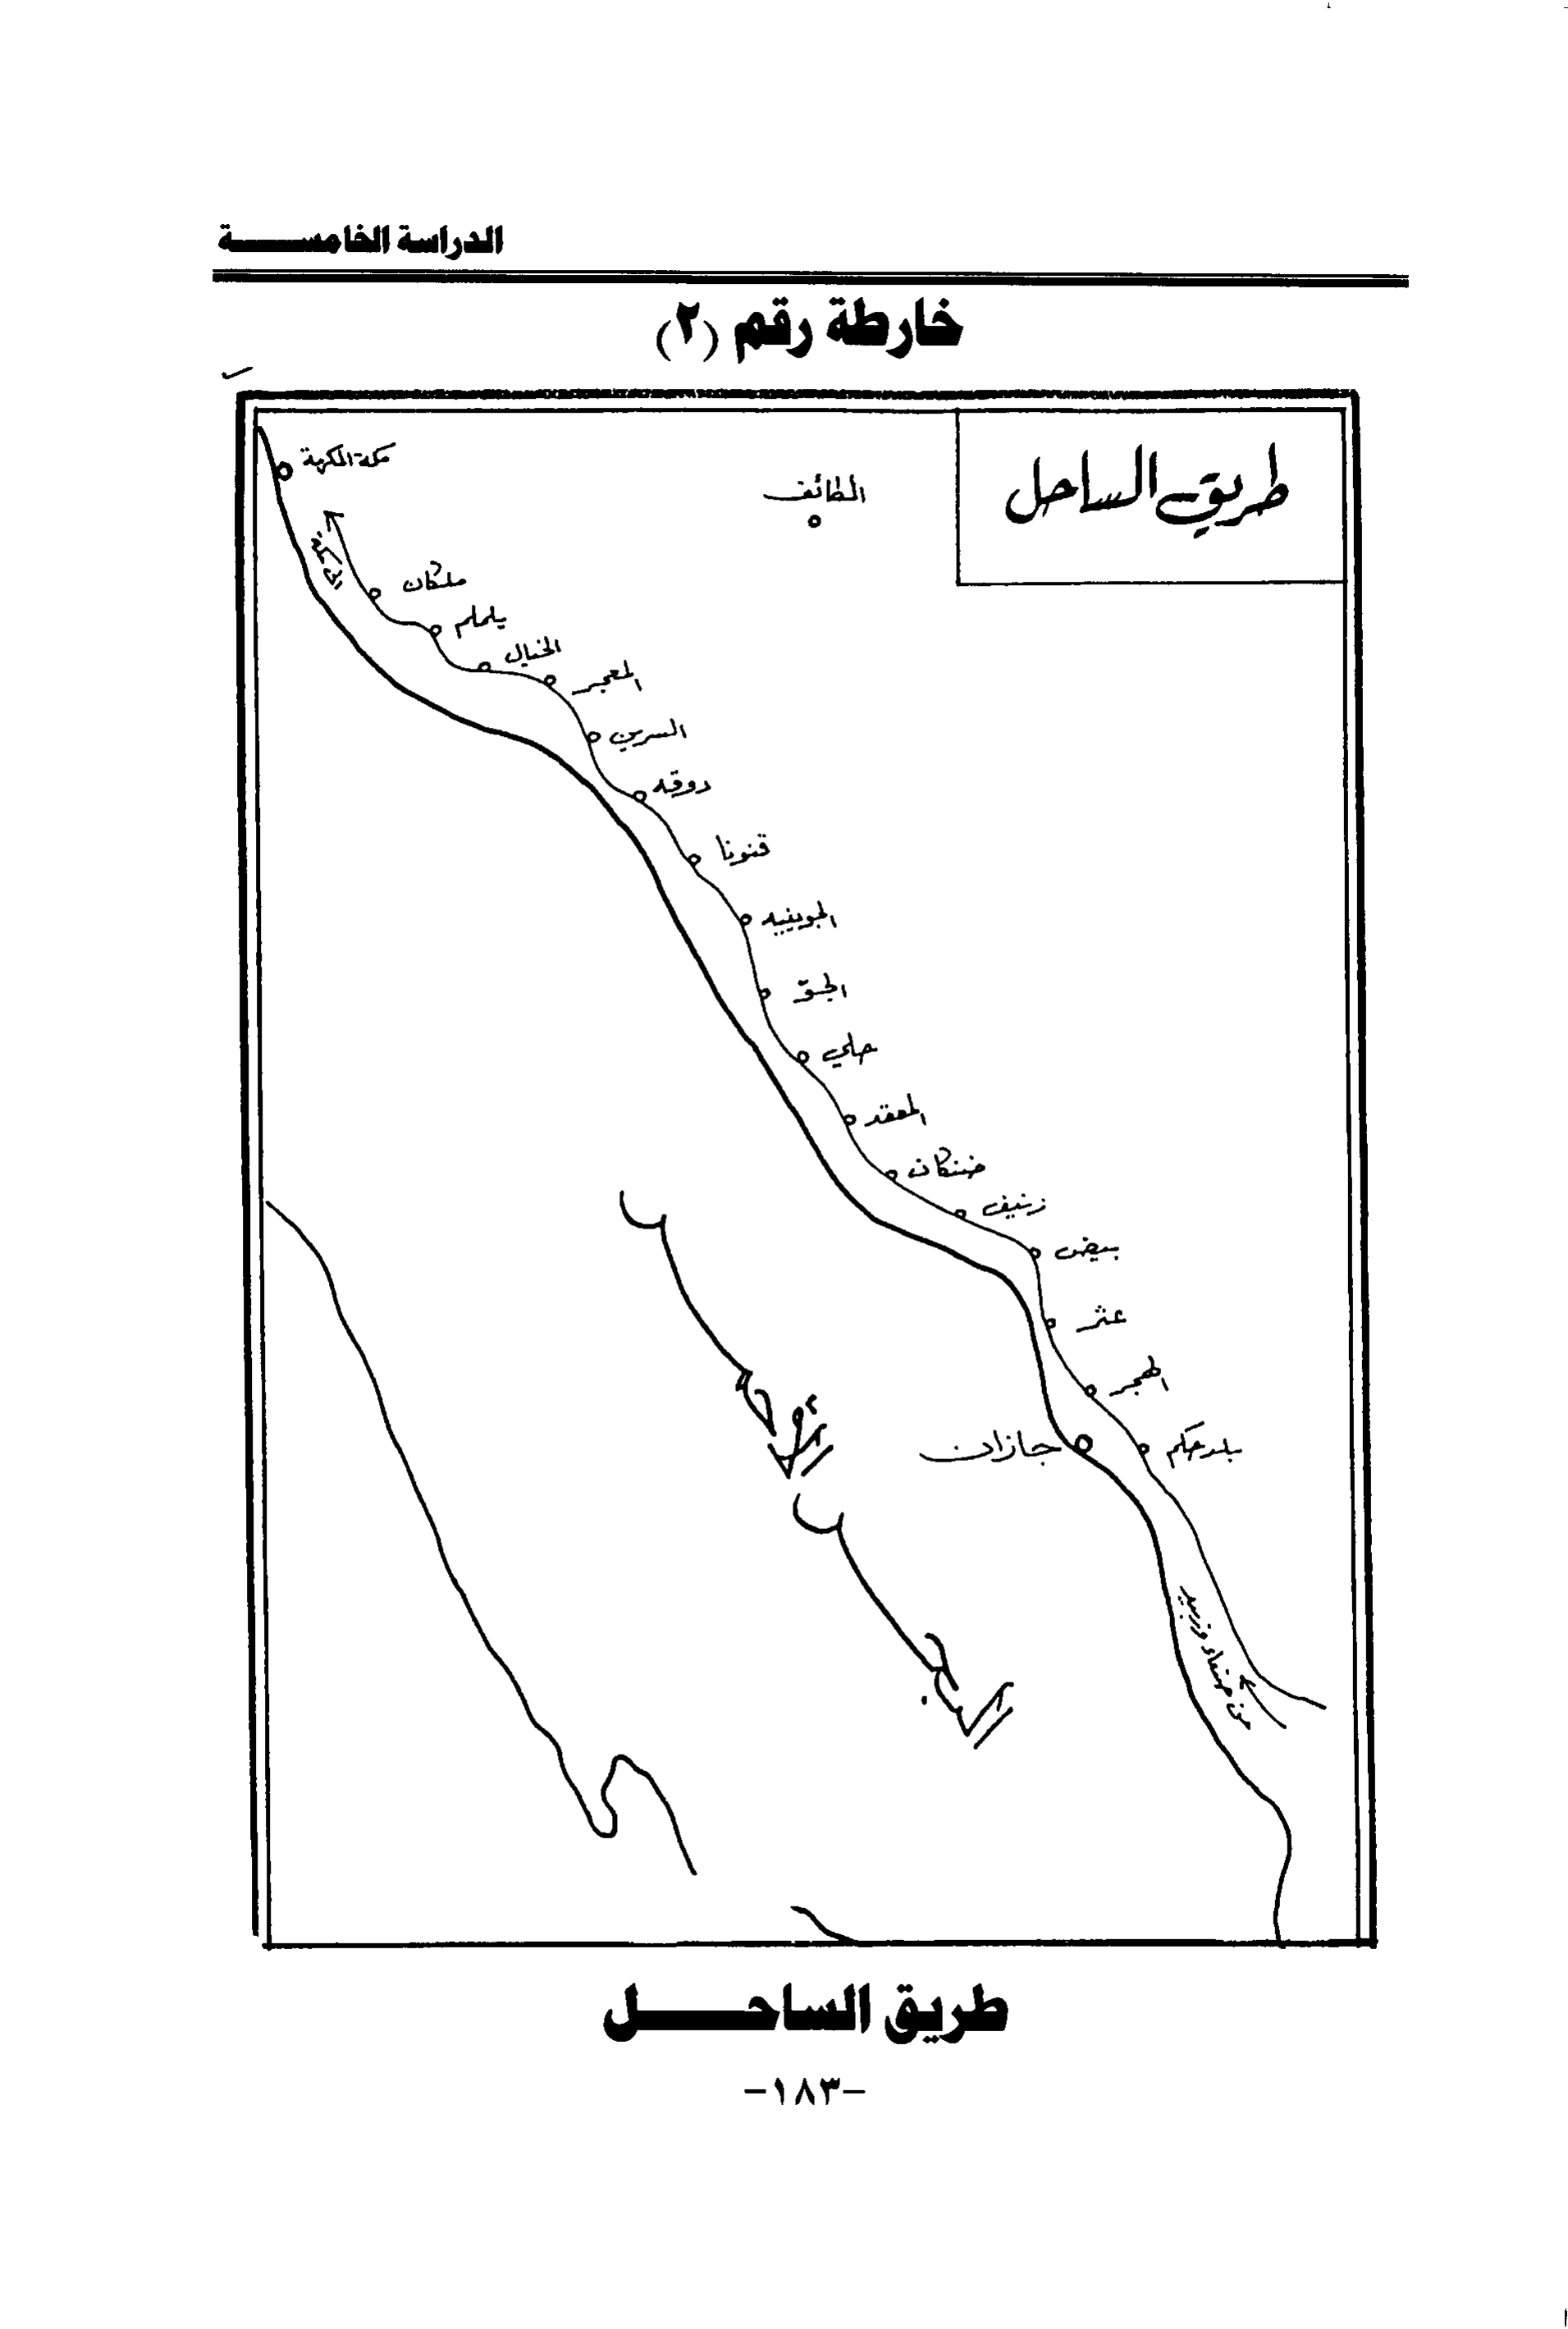 الدراسة الخامسة
خارطة رقم (٢)
طريق الساحل
مكة المكرمة
الطائف
إلى مكة
ملكان
يلملم
الخيال
المعجر
السرين
دوقه
قنونا
الجوينيه
الجو
حلي
المعقد
ضنكان
زنيف
بيض
عثر
الهجر
بلد حكم
جازان
من صنعاء وزبيد
البحر الأحمر
طريق الساحل
-١٨٣-